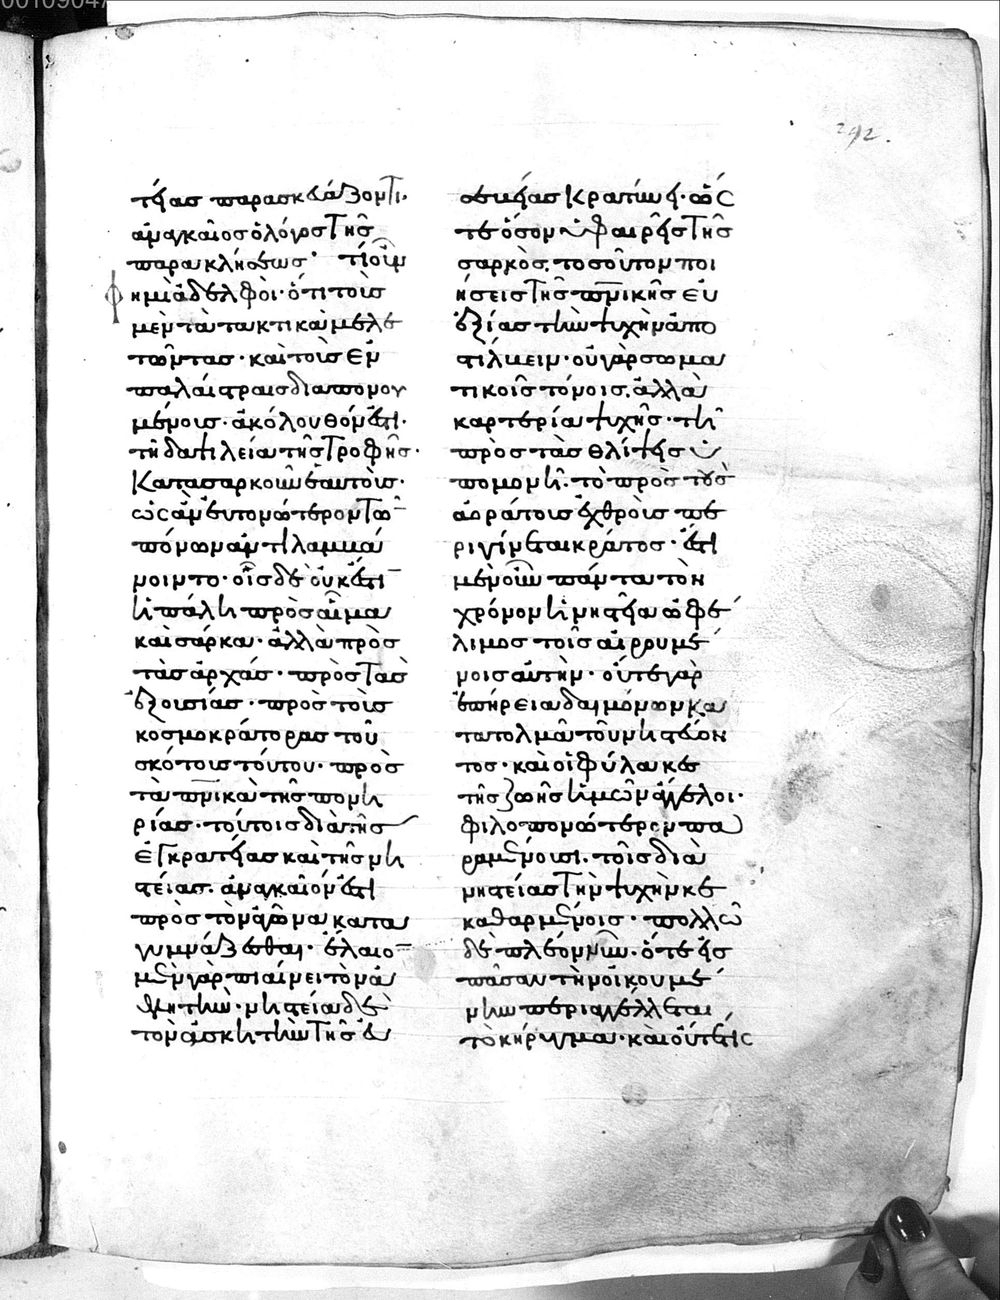 292.
τείας παρασκευάζοντι·
ἀναγκαῖος ὁ λόγος τῆς
παρακλήσεως· τί οὖν
φημὶ ἀδελφοί· ὅτι τοῖς
μὲν τὰ τακτικὰ μελε
τῶντας· καὶ τοῖς ἐν
παλαίστραις διαπονου
μένοις· ἀκόλουθόν ἐστι·
τῇ δαψιλείᾳ τῆς τροφῆς·
κατασαρκοῦν ἑαυτοὺς·
ὡς ἂν εὐτονώτερον τῶν
πόνων ἀντιλαμβά
νοιντο· οἷς δὲ οὐκ ἔστι
ἡ πάλη πρὸς αἷμα
καὶ σάρκα· ἀλλὰ πρὸς
τὰς ἀρχάς· πρὸς τὰς
ἐξουσίας· πρὸς τοὺς
κοσμοκράτορας τοῦ
σκότους τούτου· πρὸς
τὰ πνικὰ τῆς πονη
ρίας· τούτοις διὰ τῆς
ἐγκρατείας καὶ τῆς νη
στείας· ἀναγκαῖόν ἐστι
πρὸς τὸν ἀγῶνα κατα
γυμνάζεσθαι· ἔλαιον
μὲν γὰρ πιαίνει τὸν ἀ
θλητὴν· νηστεία δὲ
τὸν ἀσκητὴν τῆς εὐ
σεβείας κρατύνει· ὥς
τε ὅσον ὑφαιρεῖς τῆς
σαρκὸς· τοσοῦτον ποι
ήσεις τῆς πνικῆς εὐ
εξίας τὴν ψυχὴν ἀπο
στίλβειν· οὐ γὰρ σωμα
τικοῖς τόνοις· ἀλλὰ
καρτερίᾳ ψυχῆς· τῇ
πρὸς τὰς θλίψεις ὑ
πομονῇ· τὸ πρὸς τοὺς
ἀοράτους ἐχθροὺς πε
ριγίνεται κράτος· ἔστι
μὲν οὖν πάντα τὸν
χρόνον ἡ νηστεία ὠφέ
λιμος τοῖς αἱρουμέ
νοις αὐτὴν· οὔτε γὰρ
ἐπήρεια δαιμόνων κα
τατολμᾷ τοῦ νηστεύον
τος· καὶ οἱ φύλακες
τῆς ζωῆς ἡμῶν ἄγγελοι·
φιλοπονώτερον πα
ραμένουσι· τοῖς διὰ
νηστείας τὴν ψυχὴν κε
καθαρμένοις· πολλῷ
δὲ πλέον νῦν· ὅτε εἰς
πᾶσαν τὴν οἰκουμέ
νην περιαγγέλλεται
τὸ κήρυγμα· καὶ οὔτε τίς